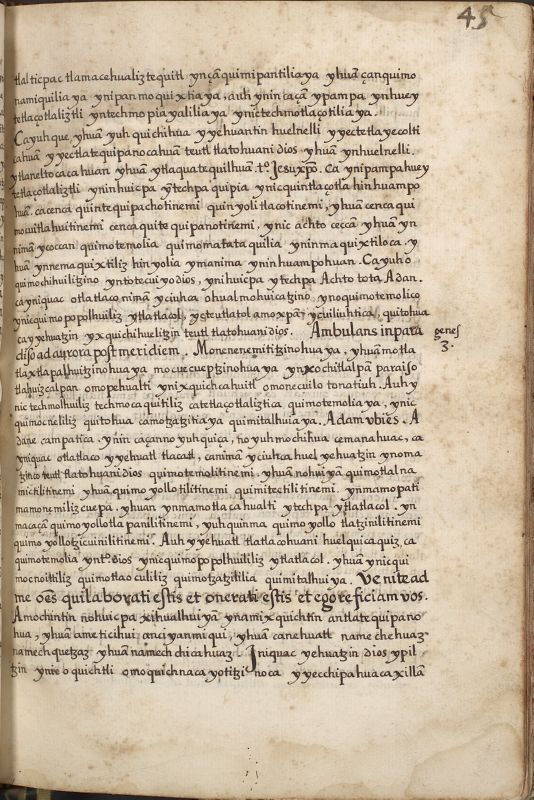 45
tlalticpac tlamacehualiztequitl ynçã quimipantilia ya yhuã çan quimo
namiquilia ya ynipan moquixtia ya, auh ynin ca çã ypampa ynhuey
tetlaçotlaliztli yntechmopialilia ya ynic techmotlaçotilia ya.
Ca yuh que, yhuã yuh quichihua yyehuantin huelnelli yyectlayecolti
cahuã yyectlatequipanocahuã teutl tlatohuani dios yhuã ynhuelnelli.
ytlaneltocacahuan yhuã ytlaquatequilhuã. tº Jesu xpō. Ca ynipampa huey
tetlaçotlaliztli yninhuicpa ytechpa quipia ynic quintlaçotla hinhuampo
huã. ca cenca quintequipachotinemi quinyolitlacotinemi, yhuã cenca qui
mouitlahuitinemi cenca quitequipanotinemi, ynic achto ceccã yhuã yn
nimã yccoccan quimotemolia quimomatataquilia yninma quixtiloca. y
huã ynnemaquixtiliz hin yolia ymanima yninhuampohuan. Ca yuh o
quimochihuilitzino yntotecuiyo dios, ynihuicpa ytechpa Achto tota Adan.
ca yniquac otlatlaco nimã yciuhca ohualmohuicatzino, yno quimotemolico
ynic quimopopolhuiliz ytlatlacol, yçteutlatol amoxpã, ycuiliuhtica, quitohua
ca yyehuatzin yxquichihuelitzin teutl tlatohuani dios. Ambulans in para
genes
3.
diso ad aurora post meridiem. Monenenemititzinohua ya, yhuã motla
tlaxtlapalhuitzinohua ya mocuecueptzinohua ya ynxochitlalpã paraiso
tlahuizcalpan omopehualti ynixquich cahuitl omonecuilo tonatiuh. Auh y
nic techmolhuiliz techmocaquitiliz ca tetlaçotlaliztica quimotemolia ya. ynic
quimocneliliz quitohua camotzatzitia ya quimitalhuia ya. Adam vbi ēs. A
dane campa tica. ynin ca çanno yuhquiça, no yuh mochihua cemanahuac, ca
yniquac otlatlaco yyehuatl tlacatl, ca nimã yciuhca huel yehuatzin ynoma
tzinco teutl tlatohuani dios quimotemolitinemi. yhuã nohuiyã quimotlalna
mictilitinemi yhuã quimoyollotilitinemi quimitectilitinemi. ynmamopati
mamonemilizcuepa. yhuan ynmamotlacahualti ytechpa ytlatlacol. yn
macaçã quimoyollotlapanilitinemi, yuhquinma quimoyollotlatzinilitinemi
quimoyollotzicuinilitinemi. Auh yyehuatl tlatlacohuani huel quicaquiz, ca
quimotemolia yntº. dios ynic quimopopolhuiliz ytlatlacol. yhuã ynic qui
mocnoittiliz quimotlaoculiliz quimotzatzitilia quimitalhuiya. Venite ad
me oēs qui laborati estis et onerati estis et ego reficiam vos.
Amochintin nohuicpa xihualhuiyã ynamixquichtin antlatequipano
hua, yhuã ameticihui anciyanmiqui, yhuã ca nehuatl namechehuaz
namechquetzaz yhuã namechchicahuaz Iniquac yehuatzin dios ypil
tzin ynic oquichtli omoquichnacayotitzinoca yyecchipahuacaxillã